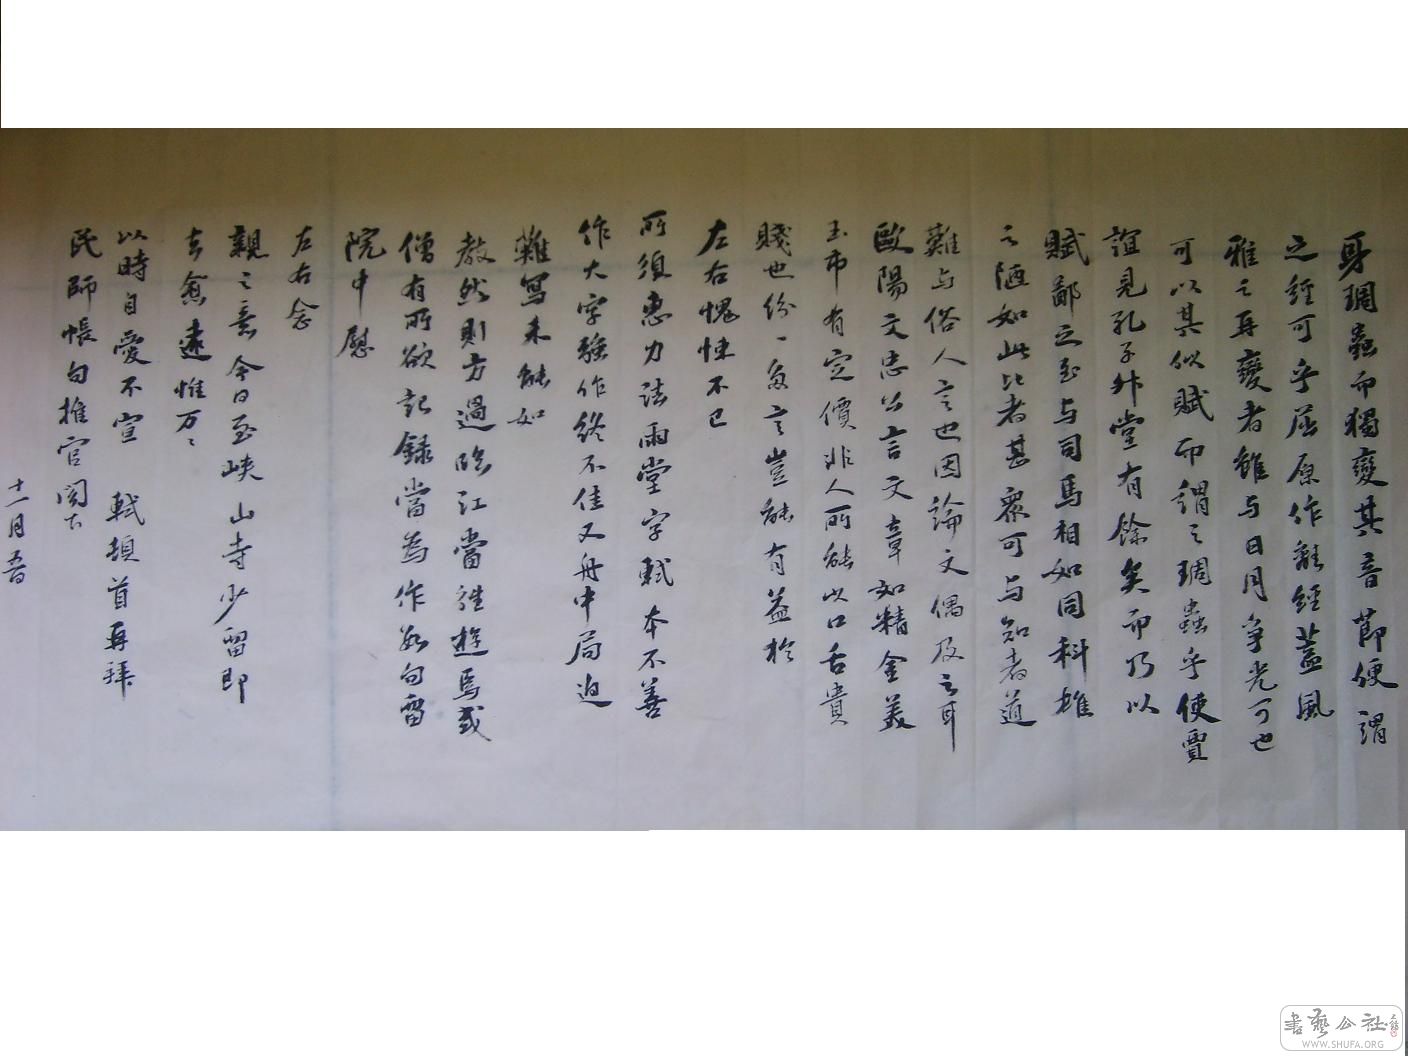 身琱蟲而獨變其音節便謂
之經可乎屈原作離經蓋風
雅之再變者雖与日月爭光可也
可以其似賦而謂之琱蟲乎使賈
誼見孔子升堂有餘矣而乃以
賦鄙之至与司馬相如同科雄
之陋如此比者甚衆可与知者道
難与俗人言也因論文偶及之耳
歐陽文忠公言文章如精金美
玉市有定價非人所能以口舌貴
賤也紛〻多言豈能有益於
左右愧悚不已
所須惠力法雨堂字軾本不善
作大字强作終不佳又舟中局迫
難寫未能如
教然則方過臨江當往遊焉或
僧有所欲記録當為作數句留
院中慰
左右念
親之意今日至峽山寺少留即
去愈遠惟万〻
以時自愛不宣 軾頓首再拜
民師帳句推官閣下
十一月五日
書藝公社
WWW.SHUFA.ORG